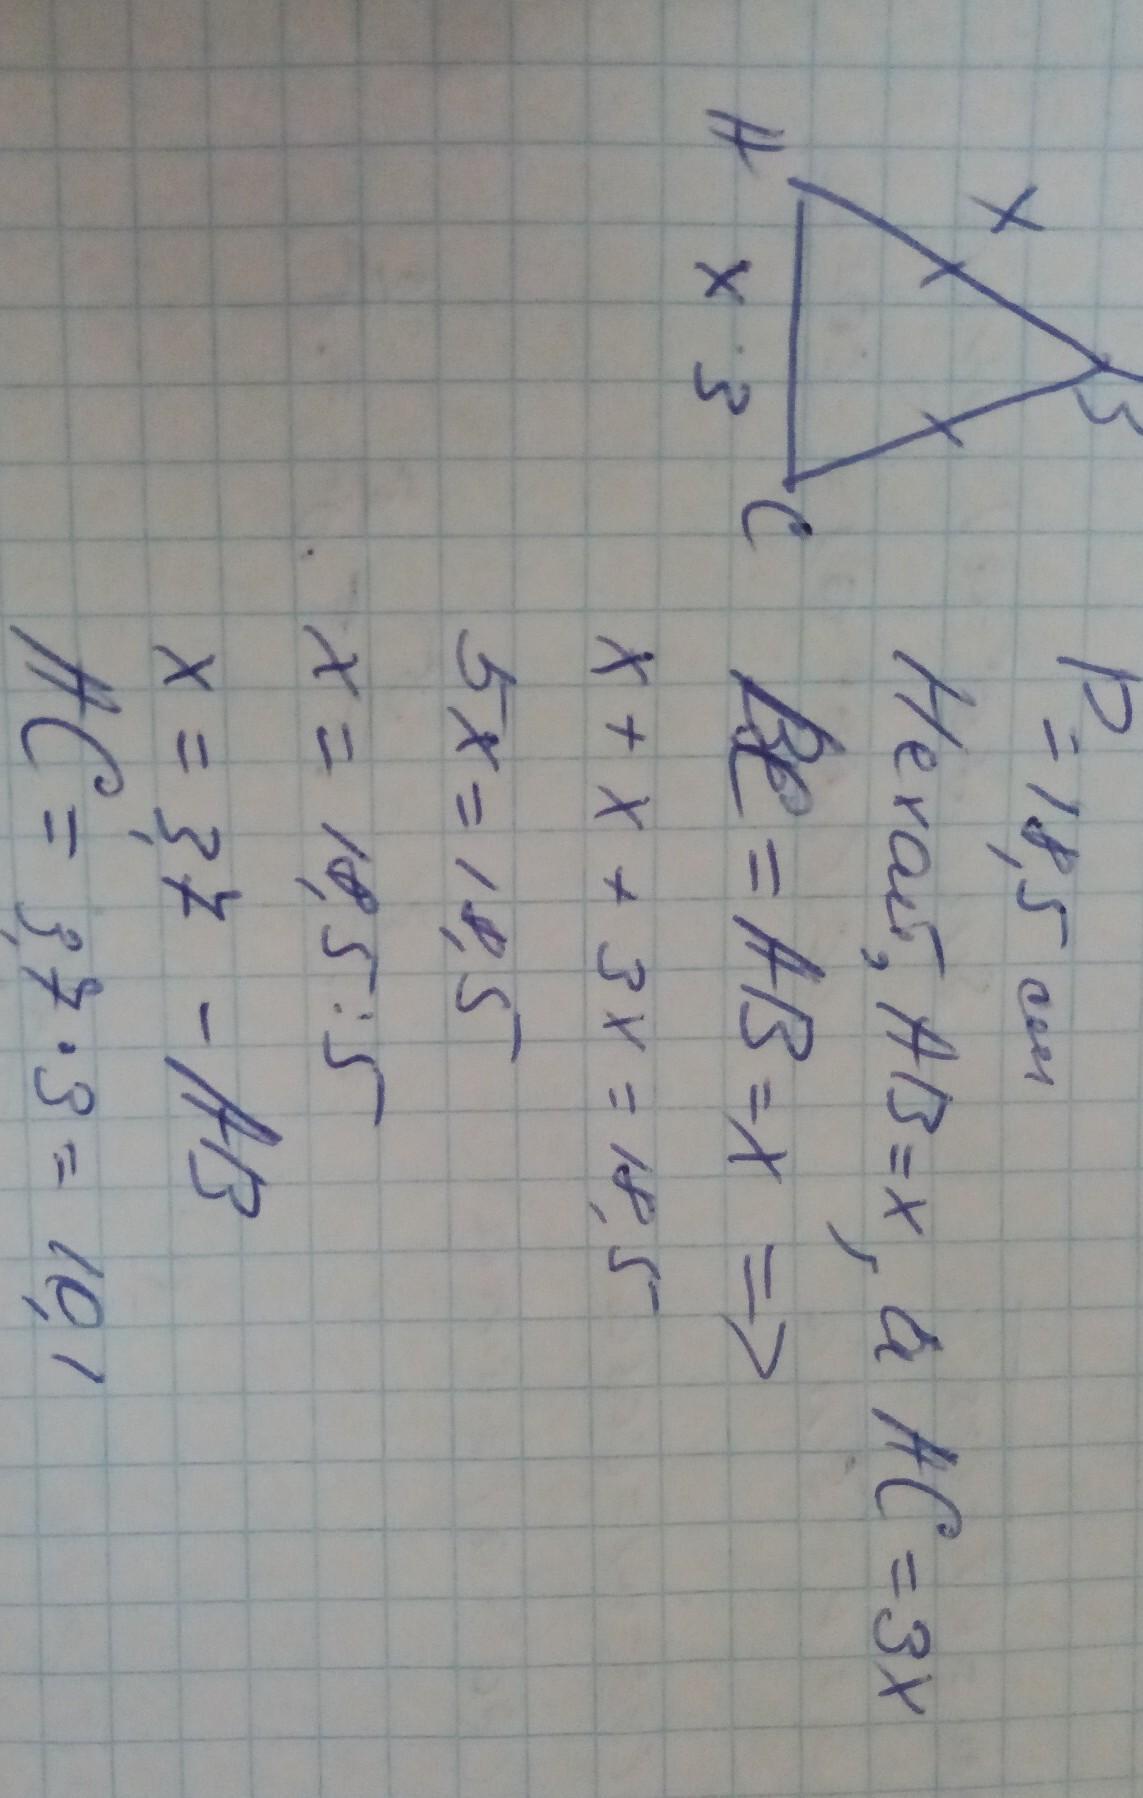 B
x
A
C
x · 3
P = 18,5 см
Нехай, AB = x, а AC = 3x
BC = AB = x =>
x + x + 3x = 18,5
5x = 18,5
x = 18,5 : 5
x = 3,7 - AB
AC = 3,7 · 3 = 10,1